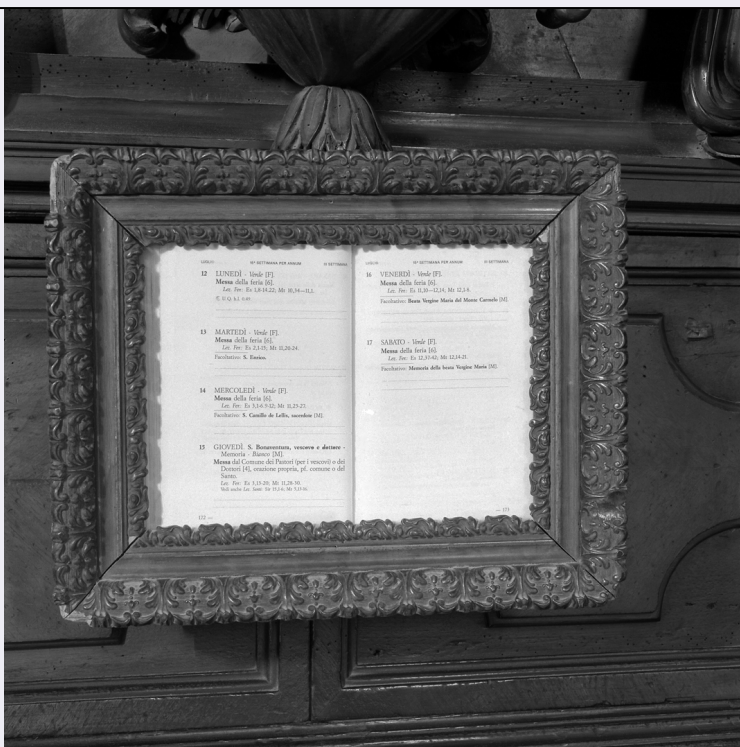 LUGLIO 15ª SETTIMANA PER ANNUM III SETTIMANA
12 LUNEDÌ - Verde [F].
Messa della feria [6].
Lez. Fer: Es 1,8-14.22; Mt 10,34—11,1.
13 MARTEDÌ - Verde [F].
Messa della feria [6].
Lez. Fer: Es 2,1-15; Mt 11,20-24.
Facoltativo: S. Enrico.
14 MERCOLEDÌ - Verde [F].
Messa della feria [6].
Lez. Fer: Es 3,1-6.9-12; Mt 11,25-27.
Facoltativo: S. Camillo de Lellis, sacerdote [M].
15 GIOVEDÌ. S. Bonaventura, vescovo e dottore -
Memoria - Bianco [M].
Messa dal Comune dei Pastori (per i vescovi) o dei
Dottori [4], orazione propria, pf. comune o del
Santo.
Lez. Fer: Es 3,13-20; Mt 11,28-30.
172 —
LUGLIO 15ª SETTIMANA PER ANNUM III SETTIMANA
16 VENERDÌ - Verde [F].
Messa della feria [6].
Lez. Fer: Es 11,10—12,14; Mt 12,1-8.
Facoltativo: Beata Vergine Maria del Monte Carmelo [M].
17 SABATO - Verde [F].
Messa della feria [6].
Lez. Fer: Es 12,37-42; Mt 12,14-21.
Facoltativo: Memoria della beata Vergine Maria [M].
— 173